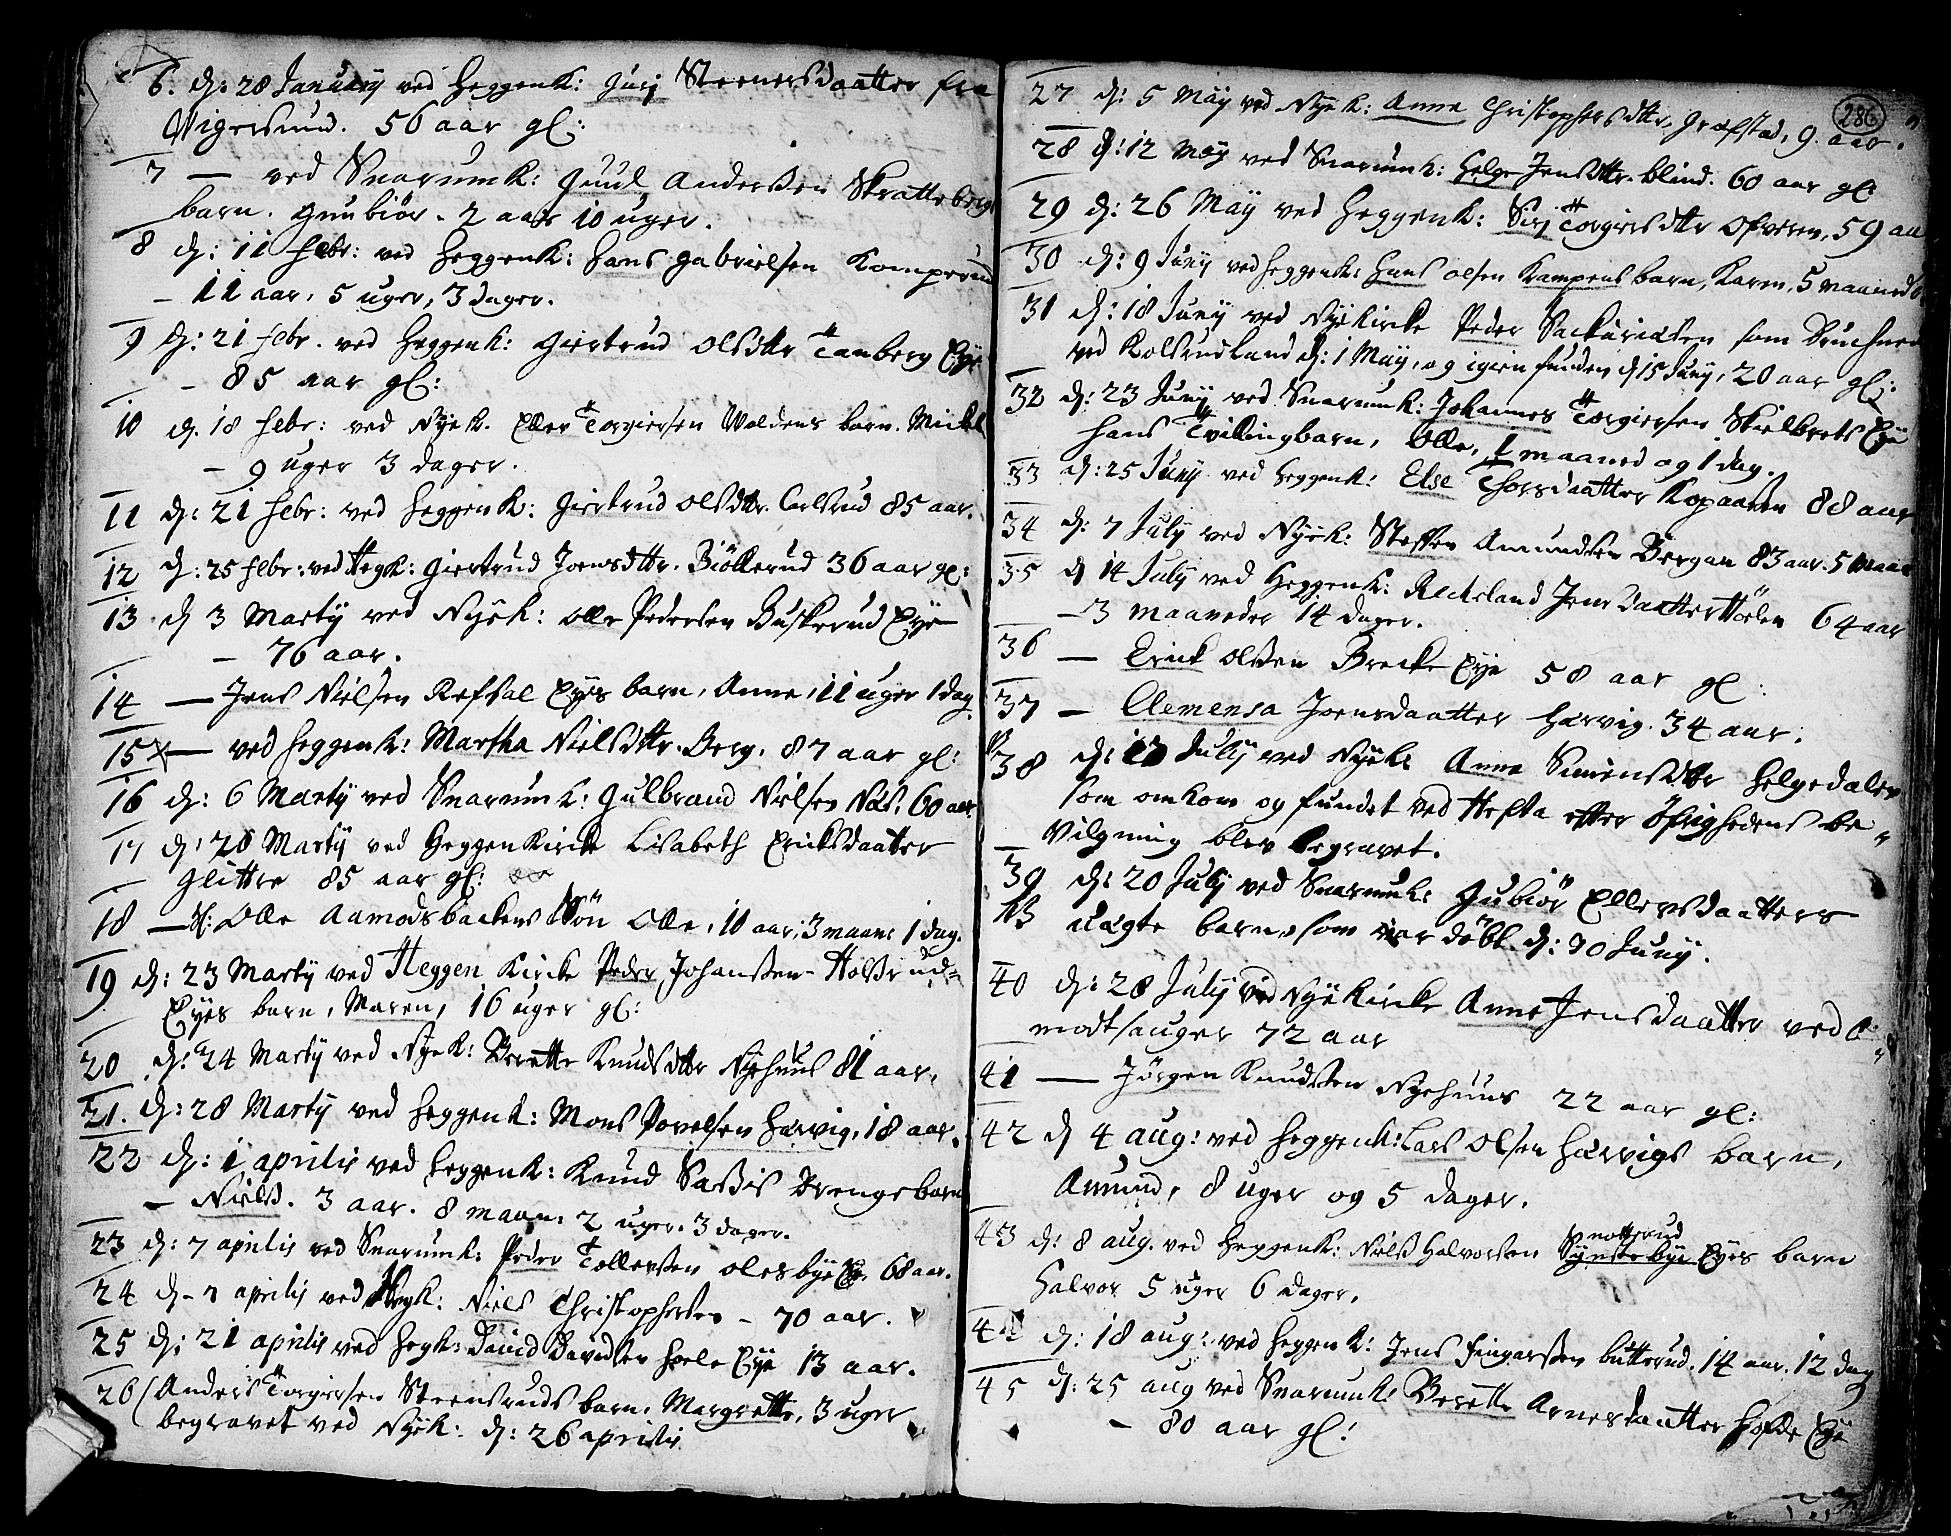 6. d: 28 January ved Heggenk: Gurj Steenersdaatter fra
Vigersund. 56 aar gl:
7 — ved Snarumk: Guul Anderßen Skrattebergs
barn. Gunbiör. 2 aar 10 uger.
8 d: 11 Febr: ved Heggenk: Hans Gabrielsen Komperud
– 11 aar, 5 uger, 3 dager.
9 d: 21 Febr. ved Heggenk: Giertrud Olsdttr Tanberg Eye
– 85 aar gl:
10 d. 18 Febr: ved Nyek. Eller Torgiersen Woldens barn. Mickel
– 9 uger 3 dager.
11 d: 21 Febr: ved Heggenk: Giertrud Olsdttr. Carlsrud 85 aar.
12 d: 25 Febr: ved Hegk: Giertrud Joensdttr. Biöllerud 36 aar gl:
13 d 3 Marty ved Nyek: Olle Pedersen Buskerud Eye
– 76 aar.
14 — Jens Nielsen Refsal Eyes barn, Anne, 11 uger 1 dag.
15 — ved Heggenk: Martha Nielsdttr. Berg. 87 aar gl:
16 d: 6 Marty ved Snarumk: Gulbrand Nielsen Næs. 60 aar
17 d: 20 Marty ved Heggen Kircke Lisabeth Ericksdaatter
Glittre 85 aar gl:
18 — Olle Aamodsbackens Sön Olle, 10 aar, 3 maan: 1 dag.
19 d: 23 Marty ved Heggen Kircke Peder Johanßen Holsrud-
Eyes barn, Maren, 16 uger gl:
20 d: 24 Marty ved Nyek: Berette Knudsdttr Nyehuus 81 aar.
21. d: 28 Marty ved Heggenk: Mons Povelsen Hærvig, 18 aar.
22 d: 1 aprilis ved Heggenk: Knud Saßis Drengebarn
– Nielß. 3 aar. 8 maan: 2 uger. 3 dager.
23 d: 7 aprilis ved Snarumk: Peder Tollerßen Olesbye Ey. 68 aar.
24 d – 7 aprilis ved Hegk: Niels Christophersen – 70 aar.
25 d: 21 aprilis ved Hegk: David Davidsen Hæle Eye 13 aar.
26 (Anders Torgiersen Steensruds barn. Margrette, 3 uger
begravet ved Nyek: d: 26 aprilis
286
27 d: 5 May ved Nyek: Anne Christophersdttr, Græfstad, 9. aar.
28 d: 12 May ved Snarumk: Helge Jensdttr. blind. 60 aar gl:
29 d: 26 May ved Heggenk: Sirj Torgiersdttr Ofveren, 59 aa
30 d: 9 Juny ved Heggenk: Hans Olsen Kampens barn, Karen, 5 maaned
31 d: 18 Juny ved Nyekircke Peder Sackarießen som Druchned
ved Kolsrudland d: 1 May, og igien funden d 15 Juny, 20 aar gl:
32 d: 23 Juny ved Snarumk: Johannes Torgiersen Skielbrets Eye
Hans Tvillingbarn, Olle, 1 maaned og 1 dag.
33 d: 25 Juny ved Heggenk: Else Thorsdaatter Kopaasen 88 aar
34 d: 7 July ved Nyek: Steffen Amundsen Bergan 83 aar. 5 maan
35 d 14 July ved Heggenk: Reckeland Jensdaatter Hoelen 64 aar
– 3 maaneder 14 dager.
36 — Erick Olßen Brecke Eye 58 aar gl:
37 – Clemensa Joensdaatter Hærvig. 34 aar.
38 d: 13 July ved Nyek: Anne Simensdttr Helgedalen
som omkom og fundet ved Hefta efter Öfrighedens be-
vilgning blev begravet.
39 d: 20 July ved Snarumk: Gubiör Ellersdaatters
NB uægte barn, som var döbt d: 30 Juny.
40 d: 28 July ved Nyekircke Anne Jensdaatter ved
modtsauger 72 aar
41 — Jörgen Knudßen Nyehuus 22 aar gl:
42 d 4 aug: ved Heggenk: Lars Olsen Hærvigs barn,
Amund, 8 uger og 5 dager.
43 d: 8 aug. ved Heggenk: Nielß Halvorsen Synstebye Eyes barn
Halvor 5 uger 6 dager.
44 d: 18 aug: ved Heggenk: Jens Fingarßen Butterud. 14 aar. 12 dag
45 d: 25 aug ved Snarumk: Berette Arnesdaatter Hofde Eye
– 80 aar gl: